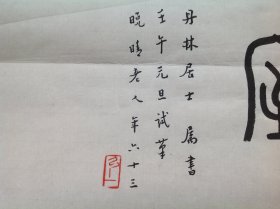 丹林居士属書
壬午元旦试笔
晚晴老人年六十三